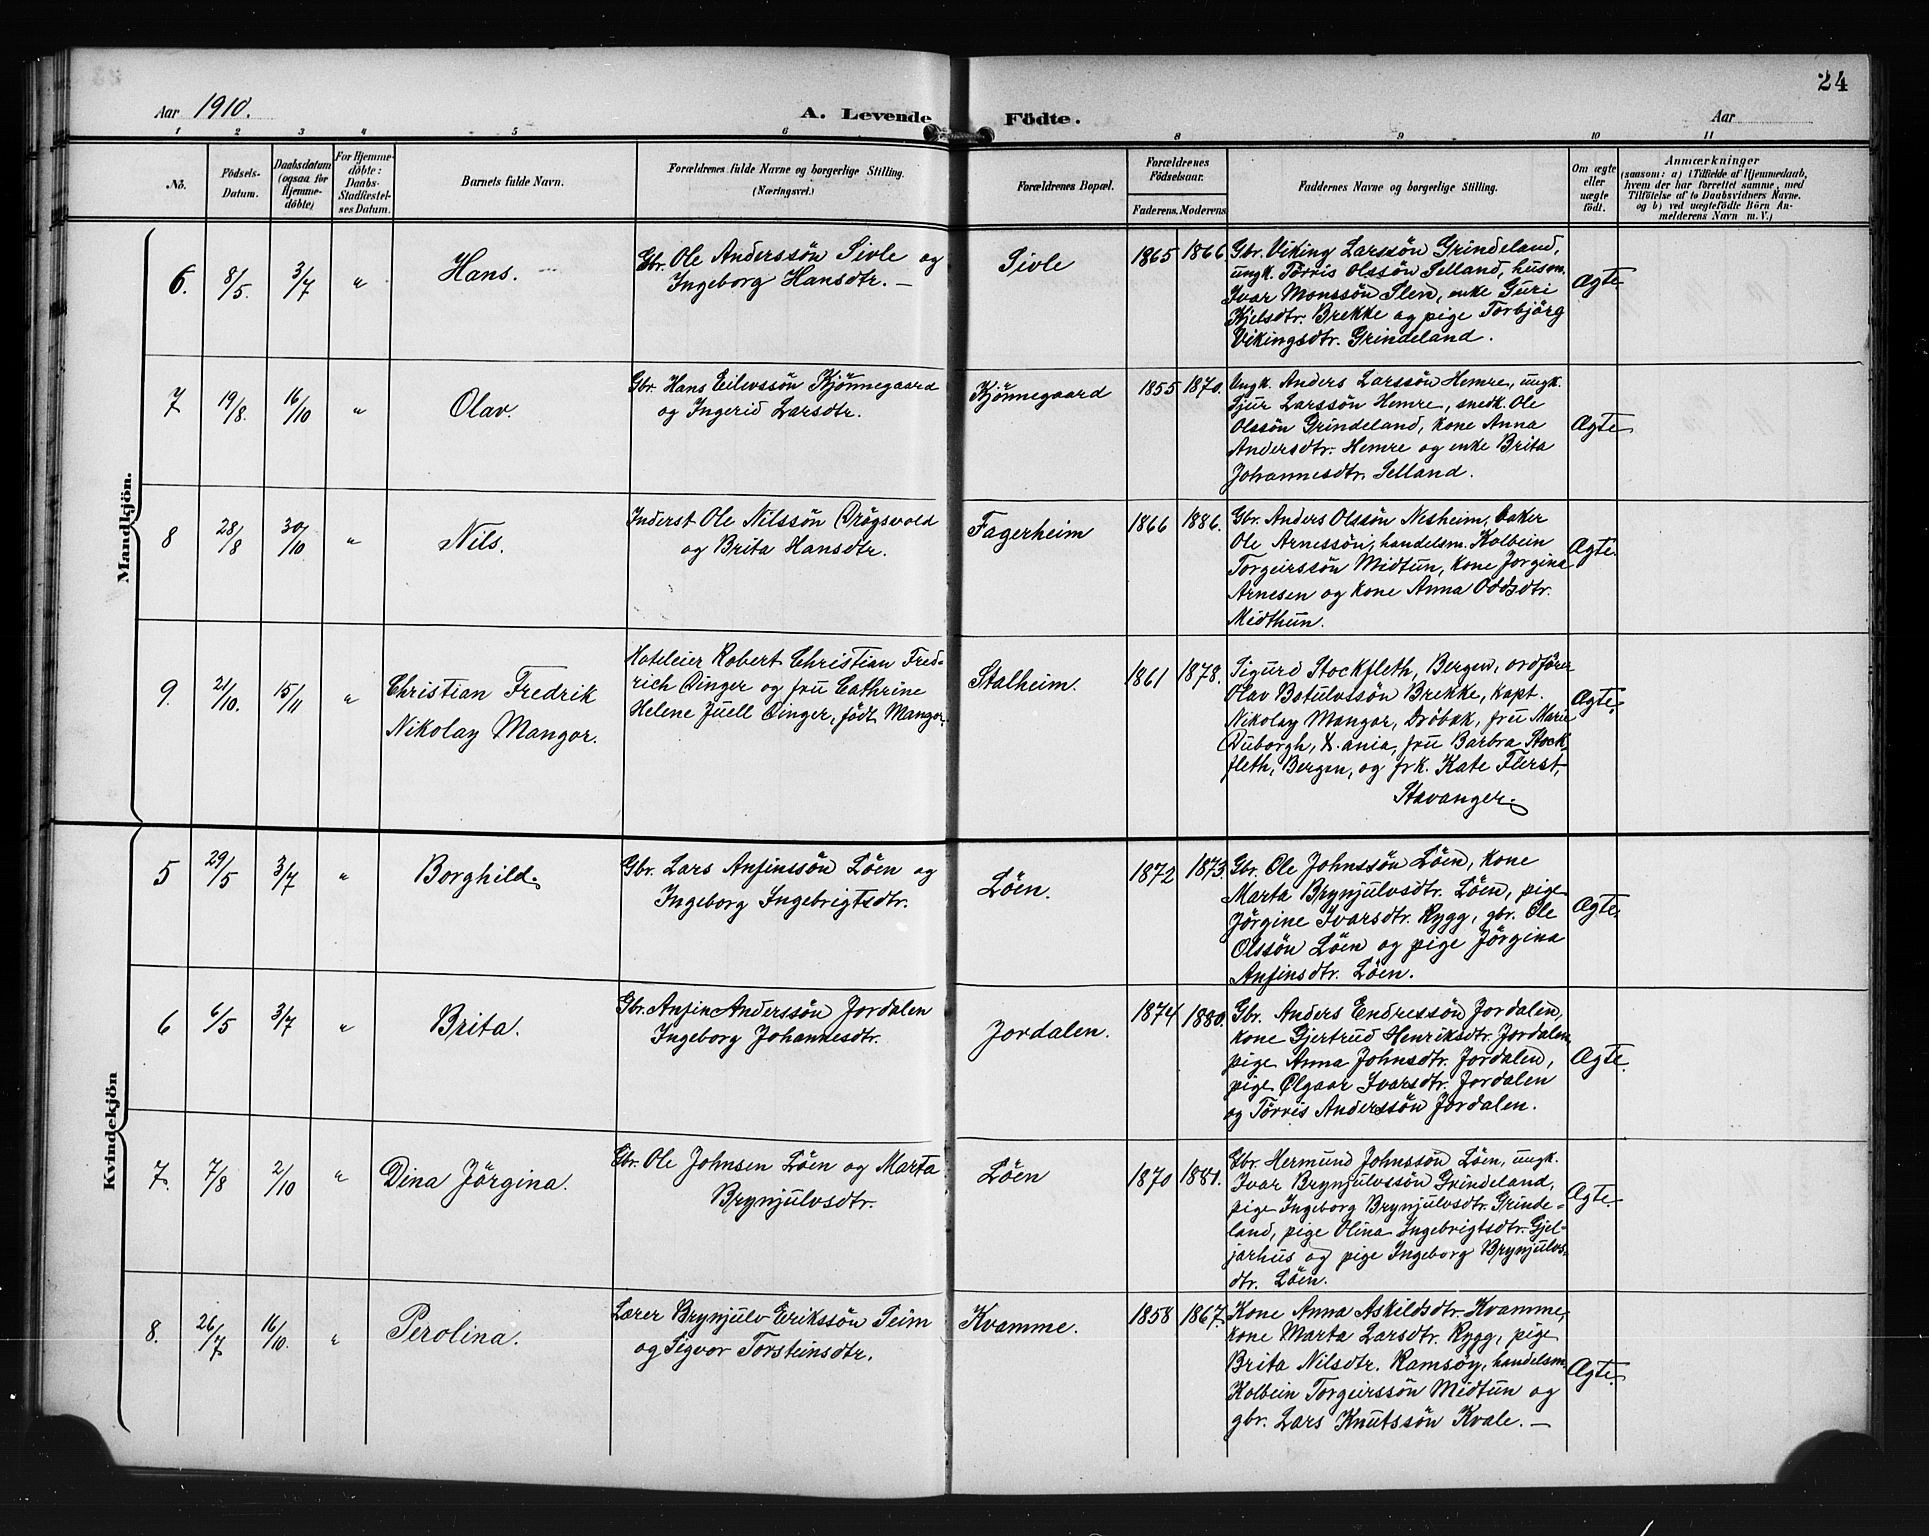 24
Aar 1910. A. Levende Födte. Aar
1 2 3 4 5 6 8 9 10 11
No. Födsels-Datum. Daabsdatum (ogsaa for Hjemme-döbte) For Hjemme-döbte: Daabs-Stadfæstel-ses Datum. Barnets fulde Navn. Forældrenes fulde Navne og borgerlige Stilling. (Næringsvei.) Forældrenes Bopæl. Forældrenes Födselsaar. Faderens. Moderens. Faddernes Navne og borgerlige Stilling. Om ægte eller uægte födt. Anmærkninger (saasom: a) i Tilfælde af Hjemmedaab, hvem der har forrettet samme, med Tilföielse af to Daabsvidners Navne. og b) ved uægtefödte Börn An-melderens Navn m. V.)
Mandkjön.
6. 8/5. 3/7 " Hans. Gbr. Ole Anderssön Sivle og
Ingeborg Hansdtr. —
Sivle 1865 1866 Gbr. Viking Larssön Grindeland,
ungk. Torris Olssön Selland, husm.
Ivar Monssön Slen, enke Guri
Kjelsdtr. Brekke og pige Torbjörg
Vikingsdtr. Grindeland.
Ægte
7 19/8. 16/10 " Olav. Gbr. Hans Eilevssön Kjönnegaard
og Ingerid Larsdtr.
Kjönnegaard 1855 1870. Ungk. Anders Larssön Hemre, ungk.
Sjur Larssön Hemre, snedk. Ole
Olssön Grindeland, kone Anna
Andersdtr. Hemre og enke Brita
Johannesdtr. Selland.
Ægte
8 28/8 30/10 " Nils. Inderst Ole Nilssön Drögsvold
og Brita Hansdtr.
Fagerheim 1866 1886. Gbr. Anders Olssön Nesheim, baker
Ole Arnessön, handelsm. Kolbein
Torgeirssön Midtun, kone Jorgina
Arnesen og kone Anna Oddsdtr.
Midthun.
Ægte.
9. 21/10. 15/11 " Christian Fredrik
Nikolay Mangor.
Hoteleier Robert Christian Fred-
rich Dinger og fru Cathrine
Helene Juell Dinger, födt Mangor.
Stalheim. 1861 1878. Sigurd Stockfleth, Bergen, ordförer
Olav Botulvssön Brekke, kapt.
Nikolay Mangor, Dröbak, fru Marie
Duborgh, X.ania, fru Barbra Stock-
fleth, Bergen, og frk. Kate Fürst,
Stavanger.
Ægte.
Kvindekjön
5 29/5 3/7 " Borghild. Gbr. Lars Anfinssön Löen og
Ingeborg Ingebrigtsdtr.
Löen. 1872 1873. Gbr. Ole Johnssön Löen, kone
Marta Brynjulvsdtr. Löen, pige
Jörgine Ivarsdtr. Rygg, gbr. Ole
Olssön Löen og pige Jörgina
Anfinsdtr. Löen.
Ægte.
6 6/5 3/7 " Brita. Gbr. Anfin Anderssön Jordalen
Ingeborg Johannesdtr.
Jordalen. 1874 1880. Gbr. Anders Endressön Jordalen,
kone Gjertrud Henriksdtr. Jordalen,
pige Anna Johnsdtr. Jordalen,
pige Ølgaar Ivarsdtr. Jordalen
og Törris Anderssön Jordalen.
Ægte.
7. 7/8 2/10 " Dina Jörgina. Gbr. Ole Johnsen Löen og Marta
Brynjulvsdtr.
Löen 1870 1881. Gbr. Hermund Johnssön Löen, ungk.
Ivar Brynjulvssön Grindeland,
pige Ingeborg Brynjulvsdtr. Grinde-
land, pige Olina Ingebrigtsdtr. Gjel-
jarhus og pige Ingeborg Brynjulvs-
dtr. Löen.
Ægte.
8. 26/7 16/10. " Perolina. Lærer Brynjulv Erikssön Seim
og Sigvor Torsteinsdtr.
Kvamme. 1858 1867. Kone Anna Askildsdtr. Kvamme,
kone Marta Larsdtr. Rygg, pige
Brita Nilsdtr. Ramsöy, handelsm.
Kolbein Torgeirssön Midtun og
gbr. Lars Knutssön Kvale. —
Ægte.